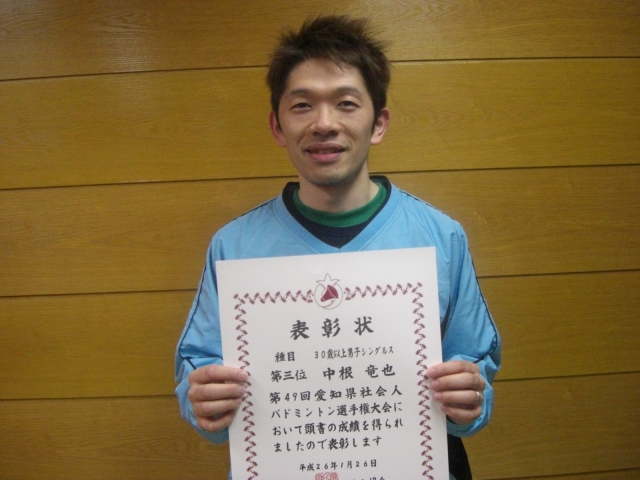 表彰状
種目 30歳以上男子シングルス
第三位 中根 竜也
第49回愛知県社会人
バドミントン選手権大会に
おいて頭書の成績を得られ
ましたので表彰します
平成26年1月26日